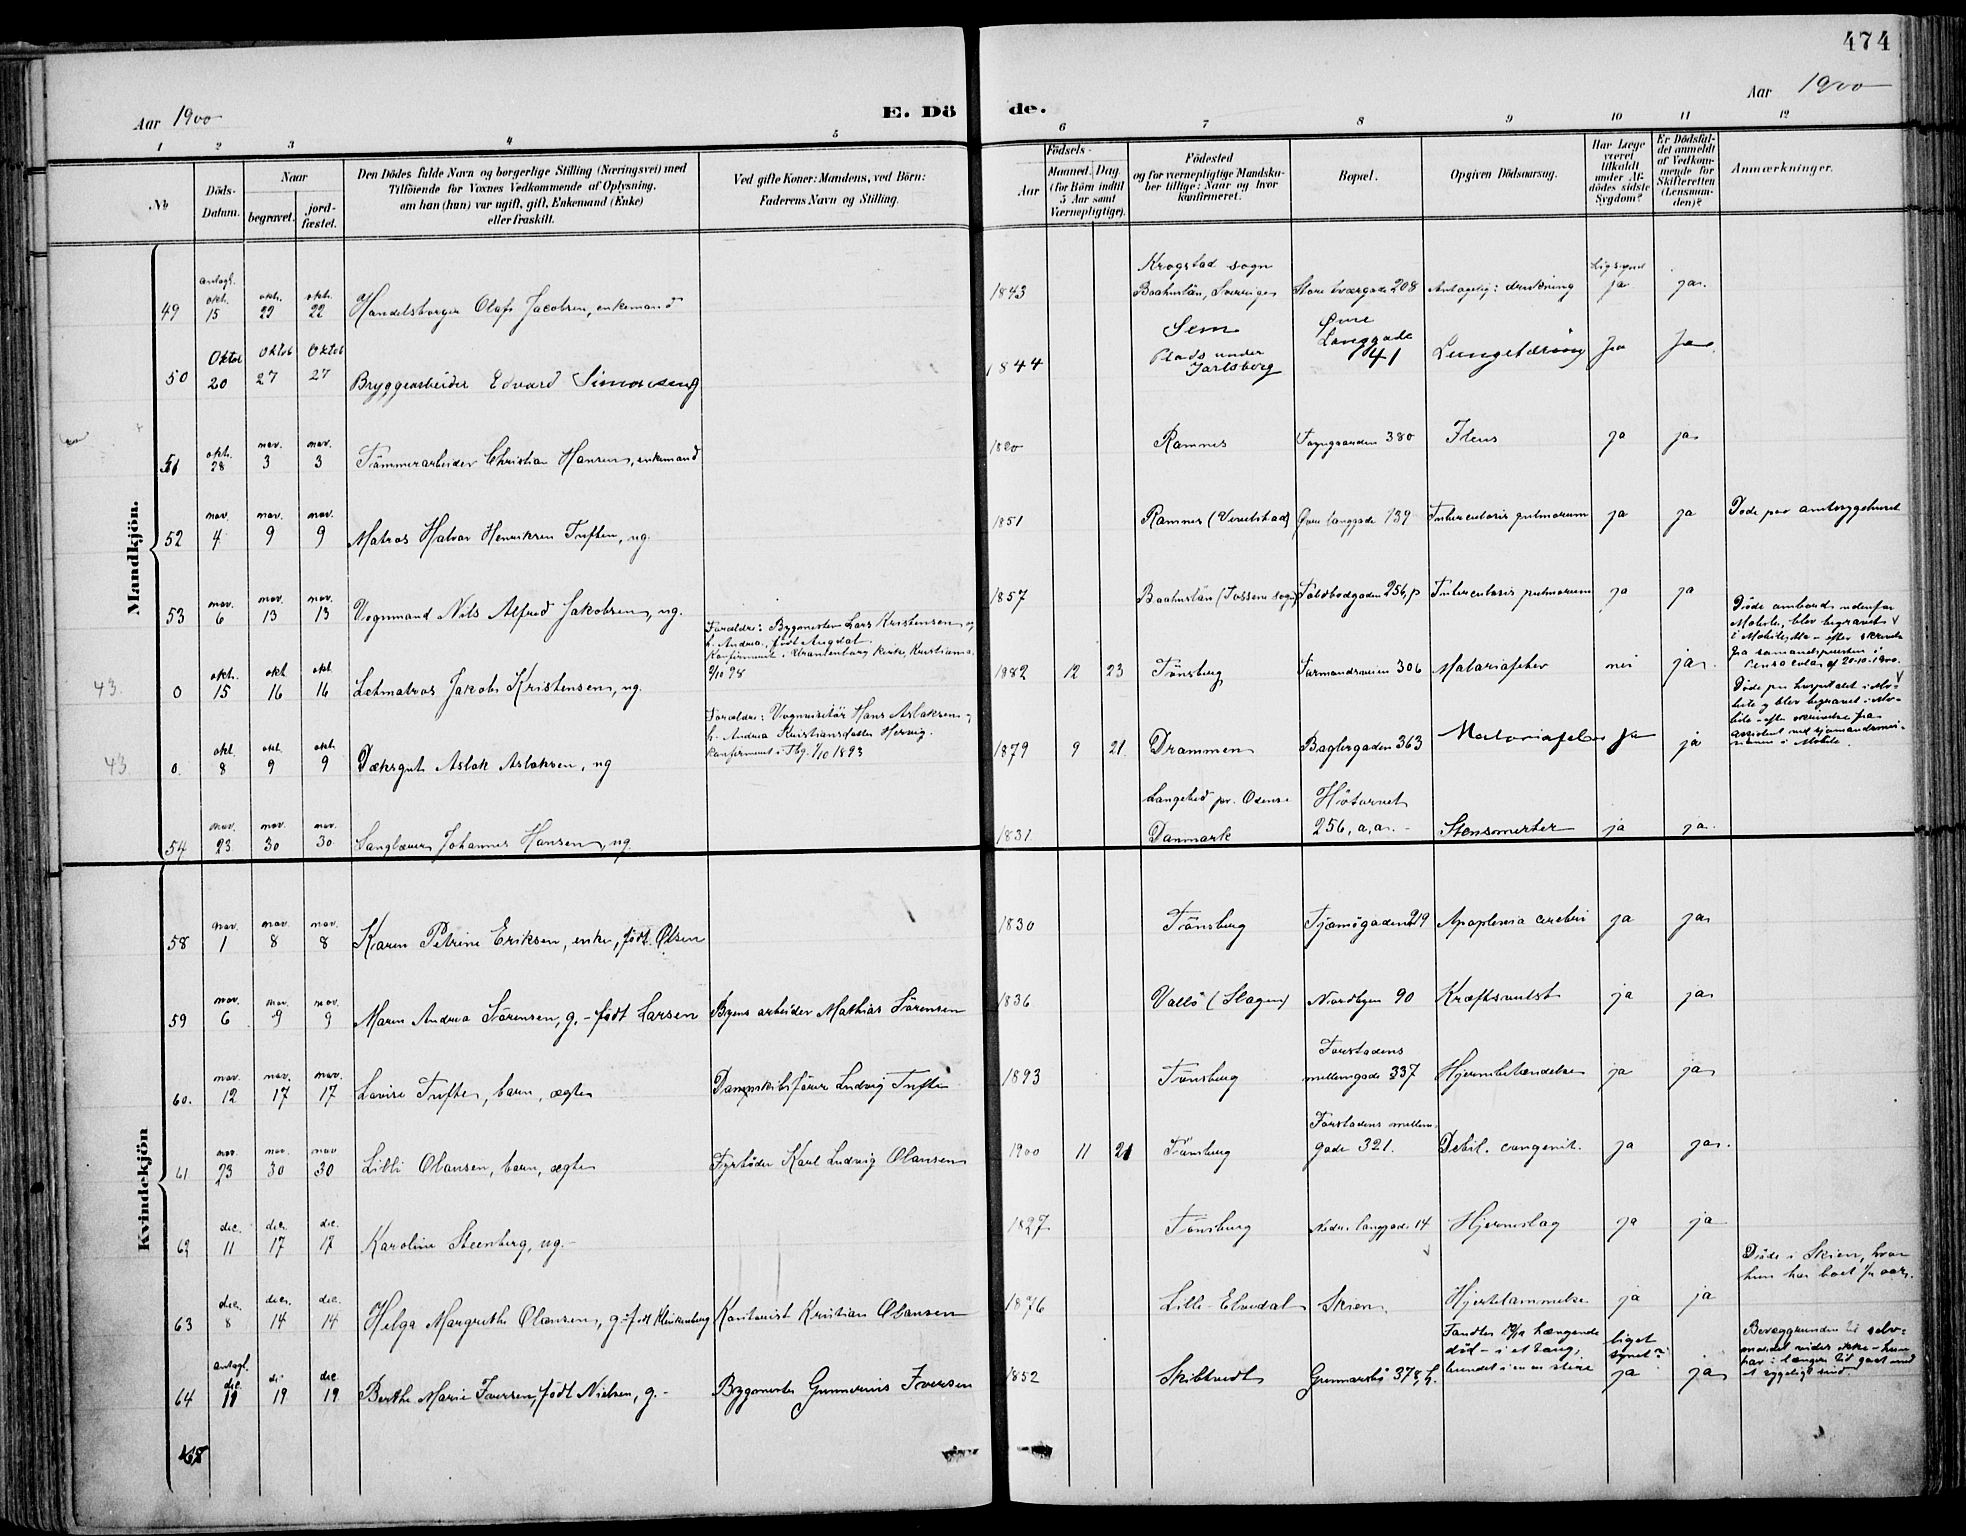 474
Aar 1900
E. Dö de.
Aar 1900
1 2 3 4 5 6 7 8 9 10 11 12
No
Döds-Datum.
Naar
begravet.
jord-fæstet.
Den Dödes fulde Navn og borgerlige Stilling (Næringsvei) med
Tilföiende for Voxnes Vedkommende af Oplysning,
om han (hun) var ugift, gift, Enkemand (Enke)
eller fraskilt.
Ved gifte Koner: Mandens, ved Börn:
Faderens Navn og Stilling.
Födsels-
Aar
Maaned. Dag
(for Börn indtil
5 Aar samt
Værnepligtige).
Födested
og for værnepligtige Mandska-
ber tillige: Naar og hvor
konfirmeret.
Bopæl.
Opgiven Dödsaarsag.
Har Læge
været
tilkaldt
under Af-
dödes sidste
Sygdom?
Er Dödsfal-
det anmeldt
af Vedkom-
mende for
Skifteretten
(Lensman-
den)?
Anmærkninger.
Mandkjön.
49 antagl. okt. 15 okt. 22 okt. 22 Handelsborger Olaf Jacobsen, enkemand 1843 Krogstad sogn Baahuslän, Sverige Store 208 Antagelig: drukning Ligsynet ja ja.
50 Oktob 20 Oktob 27 Oktob 27 Bryggearbeider Edvard Simonsen g 1844 Sem Plads under Jarlsberg Øvre Langgade 41 Lungetæring Ja Ja
51 okt. 28 nov. 3 nov. 3 Tömmerarbeider Christian Hansen, enkemand Ramnes 380 Ileus ja ja
52 nov. 4 nov. 9 nov. 9 Matros Halvor Henriksen Tuften, ug. 1851 Ramnes Øvre langgade 139 Tuberculosis pulmorum ja ja Döde paa amtssygehuset
53 nov. 6 nov. 13 nov. 13 Vognmand Nils Alfred Jakobsen, ug. 1857 Baahuslän (Tossene sogn) Toldbodgaden 256, p Tuberculosis pulmorum ja ja
43. 0 okt. 15 okt 16 okt 16 Letmatros Jakob Kristensen, ug. Forældre: Bygmester Lars Kristensen og h. Andrea, født Augdal. Konfirmeret i Uranienborg kirke, Kristiania 9/10 98 1882 12 23 Tönsberg Farmandsveien 306 Malariafeber nei ja. Döde ombord udenfor Mobile, blev begravet i Mobile, - efter skrivelse fra sömandspresten i Pensacola af 20-10-1900.
43 0. okt 8 okt. 9 okt. 9 Dæksgut Aslak Aslaksen, ug Forældre: Vognvisitör Hans Aslaksen og h. Andrea Kristiansdatter Hervig. konfirmeret i Tbg. 1/10 1893 1879 9 21 Drammen Baglergaden 363 Malariafeber Ja ja Döde paa hospitalet i Mobile og blev begravet i Mobile - efter skrivelse fra assistent ved sjömandsmissionen i Mobile.
54 nov. 23 nov. 30 nov. 30 Sanglærer Johannes Hansen, ug. 1831 Langehed pr. Odense Danmark Høtorvet 256, a,a. - Stensmerter ja ja.
Kvindekjön
58 nov. 1 nov. 8 nov. 8 Karen Petrine Eriksen, enke, født Olsen 1830 Tönsberg Tjømøgaden 219 Apoplexia cerebri ja ja
59 nov. 6 nov. 9 nov. 9 Maren Andrea Sörensen, g. - født Larsen Byens arbeider Mathias Sörensen 1836 Vallö (Slagen) Nordbyen 90 Kræftsvulst ja ja
60. nov. 12 nov. 17 nov. 17 Lovise Tufte, barn, ægte Dampskibsfører Ludvig Tufte 1893 Tönsberg Forstadens mellemgade 337 Hjernebetændelse ja ja
61 nov. 23 nov. 30 nov 30 Lilli Olausen, barn, ægte Fyrbøder Karl Ludvig Olausen 1900 11 21 Tönsberg Forstadens mellemgade 321. Debil. congenit. ja ja.
62 dec. 11 dec. 17 dec. 17 Karoline Steenberg, ug. - 1827 Tönsberg Nedre langgade 14 Hjerneslag ja ja
63 dec. 8 dec. 14 dec. 14 Helga Margrethe Olausen, g - født Klinkenberg Kontorist Kristian Olausen 1876 Lille-Elvedal Skien Hjertelammelse ja ja Døde i Skien, hvor hun har boet 1/2 aar.
64 antagl. dec. 11 de 19 dec 19 Berthe Marie Iversen, født Nielsen, g. - Bygmester Gunnerius Iversen 1852 Skibtvedt Gunnarsbö 378, b. Fandtes 12/12 hængende död - i et toug, bundet i en stige liget synet? ja ja Bevæggrunden til selvmordet vides ikke - hun har i længere tid gaat med et sygeligt sind.